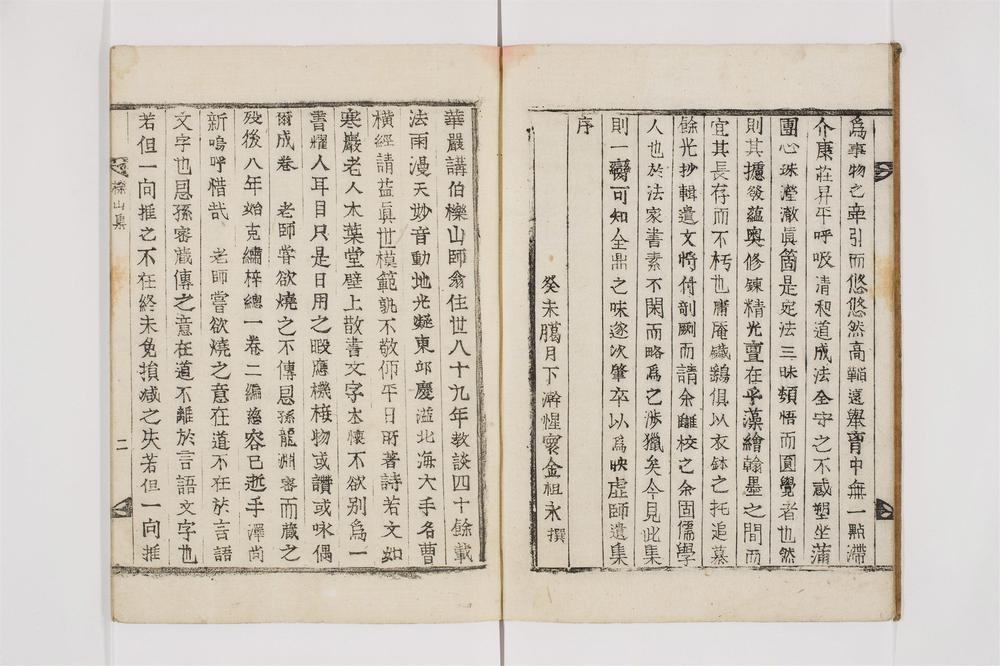 爲事物之牽引而悠悠然高韜遠擧胷中無一點滯
介康莊昇平呼吸清和道成法全守之不惑塑坐蒲
團心珠瀅澈眞箇是定法三昧頓悟而圓覺者也然
則其攄發蘊奧修鍊精光亶在乎藻繪翰墨之間而
宜其長存而不朽也庸庵鐵鷄俱以衣鉢之托追慕
餘光抄輯遺文將付剞劂而請余讎校之余固儒學
人也於法家書素不閑而略爲之涉獵矣今見此集
則一臠可知全鼎之味遂次肇卒以爲映虛師遺集
序
癸未臈月下澣惺寰金祖永撰
華嚴講伯櫟山師翁住世八十九年教談四十餘載
法雨漫天妙音動地光凝東邱慶溢北海大手名曹
橫經請益眞世模範孰不敬仰平日所著詩若文如
寒巖老人木葉堂壁上散書文字本懷不欲別爲一
書耀人耳目只是日用之暇應機接物或讚或咏偶
爾成卷 老師嘗欲燒之不傳恩孫龍淵密而藏之
歿後八年始克繡梓總一卷二編慈容已逝手澤尙
新嗚呼惜哉 老師嘗欲燒之意在道不在於言語
文字也恩孫審藏傳之意在道不離於言語文字也
若但一向推之不在終未免損减之失若但一向推
櫟山集
二